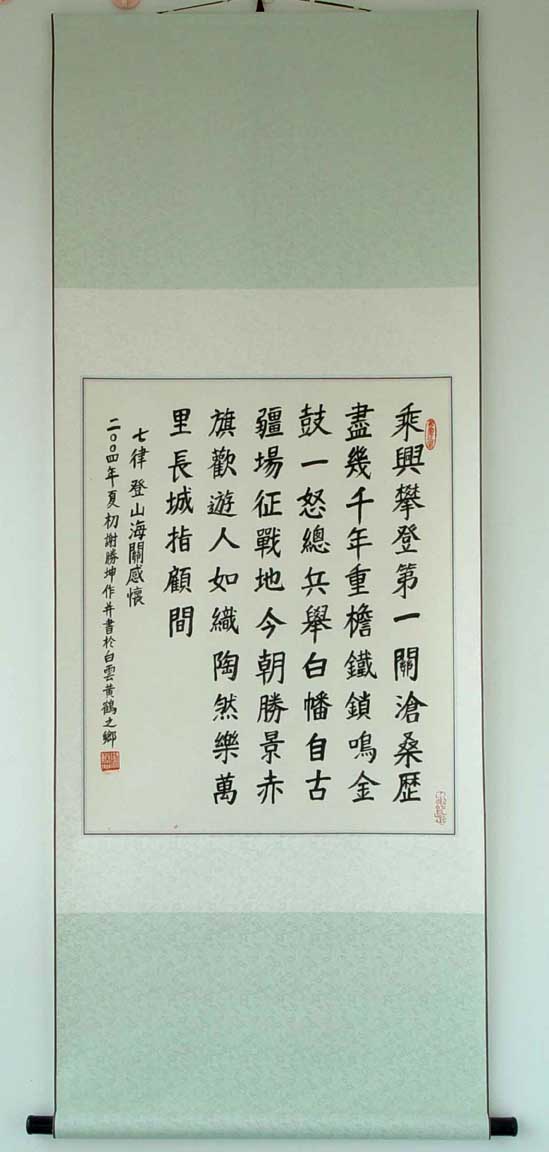 乘興攀登第一關滄桑歷
盡幾千年重檐鐵鎖鳴金
鼓一怒總兵舉白幡自古
疆場征戰地今朝勝景赤
旗歡遊人如織陶然樂萬
里長城指顧間
七律 登山海關感懷
二〇〇四年夏初謝勝坤作并書於白雲黃鶴之鄉